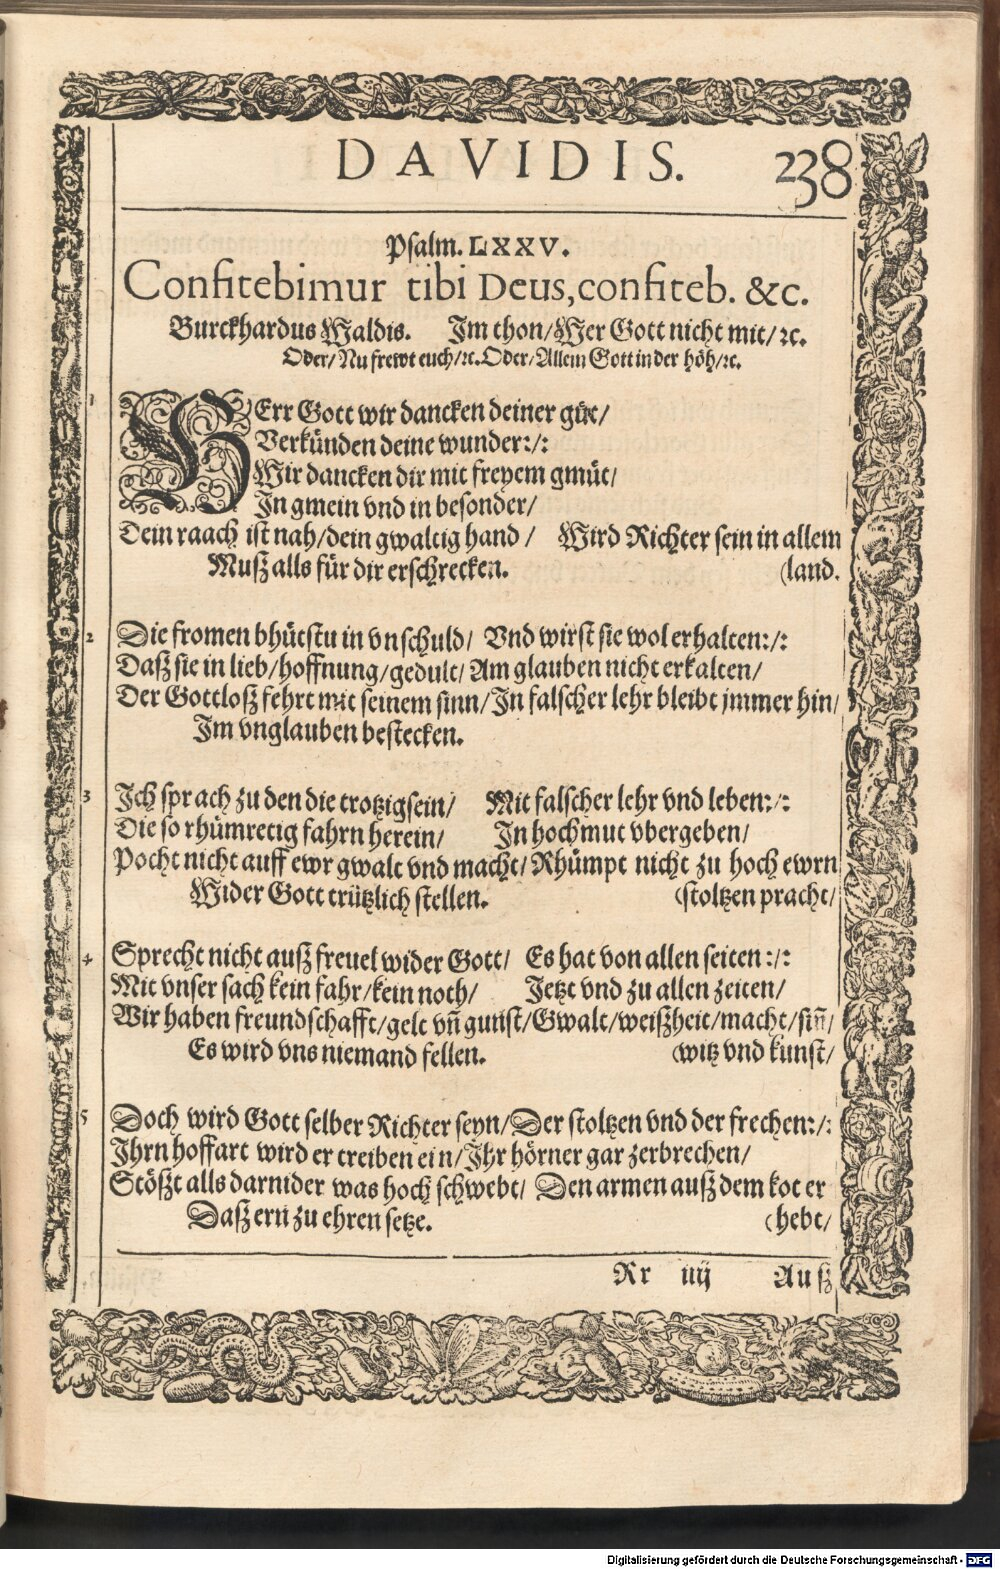 DAVIDIS. 238
Psalm. LXXV.
Confitebimur tibi Deus, confiteb. &c.
Burckhardus Waldis. Im thon/ Wer Gott nicht mit/ ꝛc.
Oder/ Nu frewt euch/ ꝛc. Oder/ Allem Gott in der höh/ ꝛc.
1 HErr Gott wir dancken deiner güt/
Verkünden deine wunder:/:
Wir dancken dir mit freyem gmüt/
In gmein vnd in besonder/
Dein raach ist nah/ dein gwaltig hand/ Wird Richter sein in allem
Muß alls für dir erschrecken. (land.
2 Die fromen bhütstu in vnschuld/ Vnd wirst sie wol erhalten:/:
Daß sie in lieb/ hoffnung/ gedult/ Am glauben nicht erkalten/
Der Gottloß fehrt mit seinem sinn/ In falscher lehr bleibt jmmer hin/
Im vnglauben bestecken.
3 Ich sprach zu den die trotzig sein/ Mit falscher lehr vnd leben:/:
Die so rhümretig fahrn herein/ In hochmut vbergeben/
Pocht nicht auff ewr gwalt vnd macht/ Rhümpt nicht zu hoch ewrn
Wider Gott trützlich stellen. (stoltzen pracht/
4 Sprecht nicht auß freuel wider Gott/ Es hat von allen seiten:/:
Mit vnser sach kein fahr/ kein noth/ Jetzt vnd zu allen zeiten/
Wir haben freundschafft/ gelt vñ gunst/ Gwalt/ weißheit/ macht/ siñ/
Es wird vns niemand fellen. (witz vnd kunst/
5 Doch wird Gott selber Richter seyn/ Der stoltzen vnd der frechen:/:
Ihrn hoffart wird er treiben ein/ Ihr hörner gar zerbrechen/
Stößt alls darnider was hoch schwebt/ Den armen auß dem kot er
Daß ern zu ehren setze. (hebt/
Rr iiij Auß
Digitalisierung gefördert durch die Deutsche Forschungsgemeinschaft - DFG